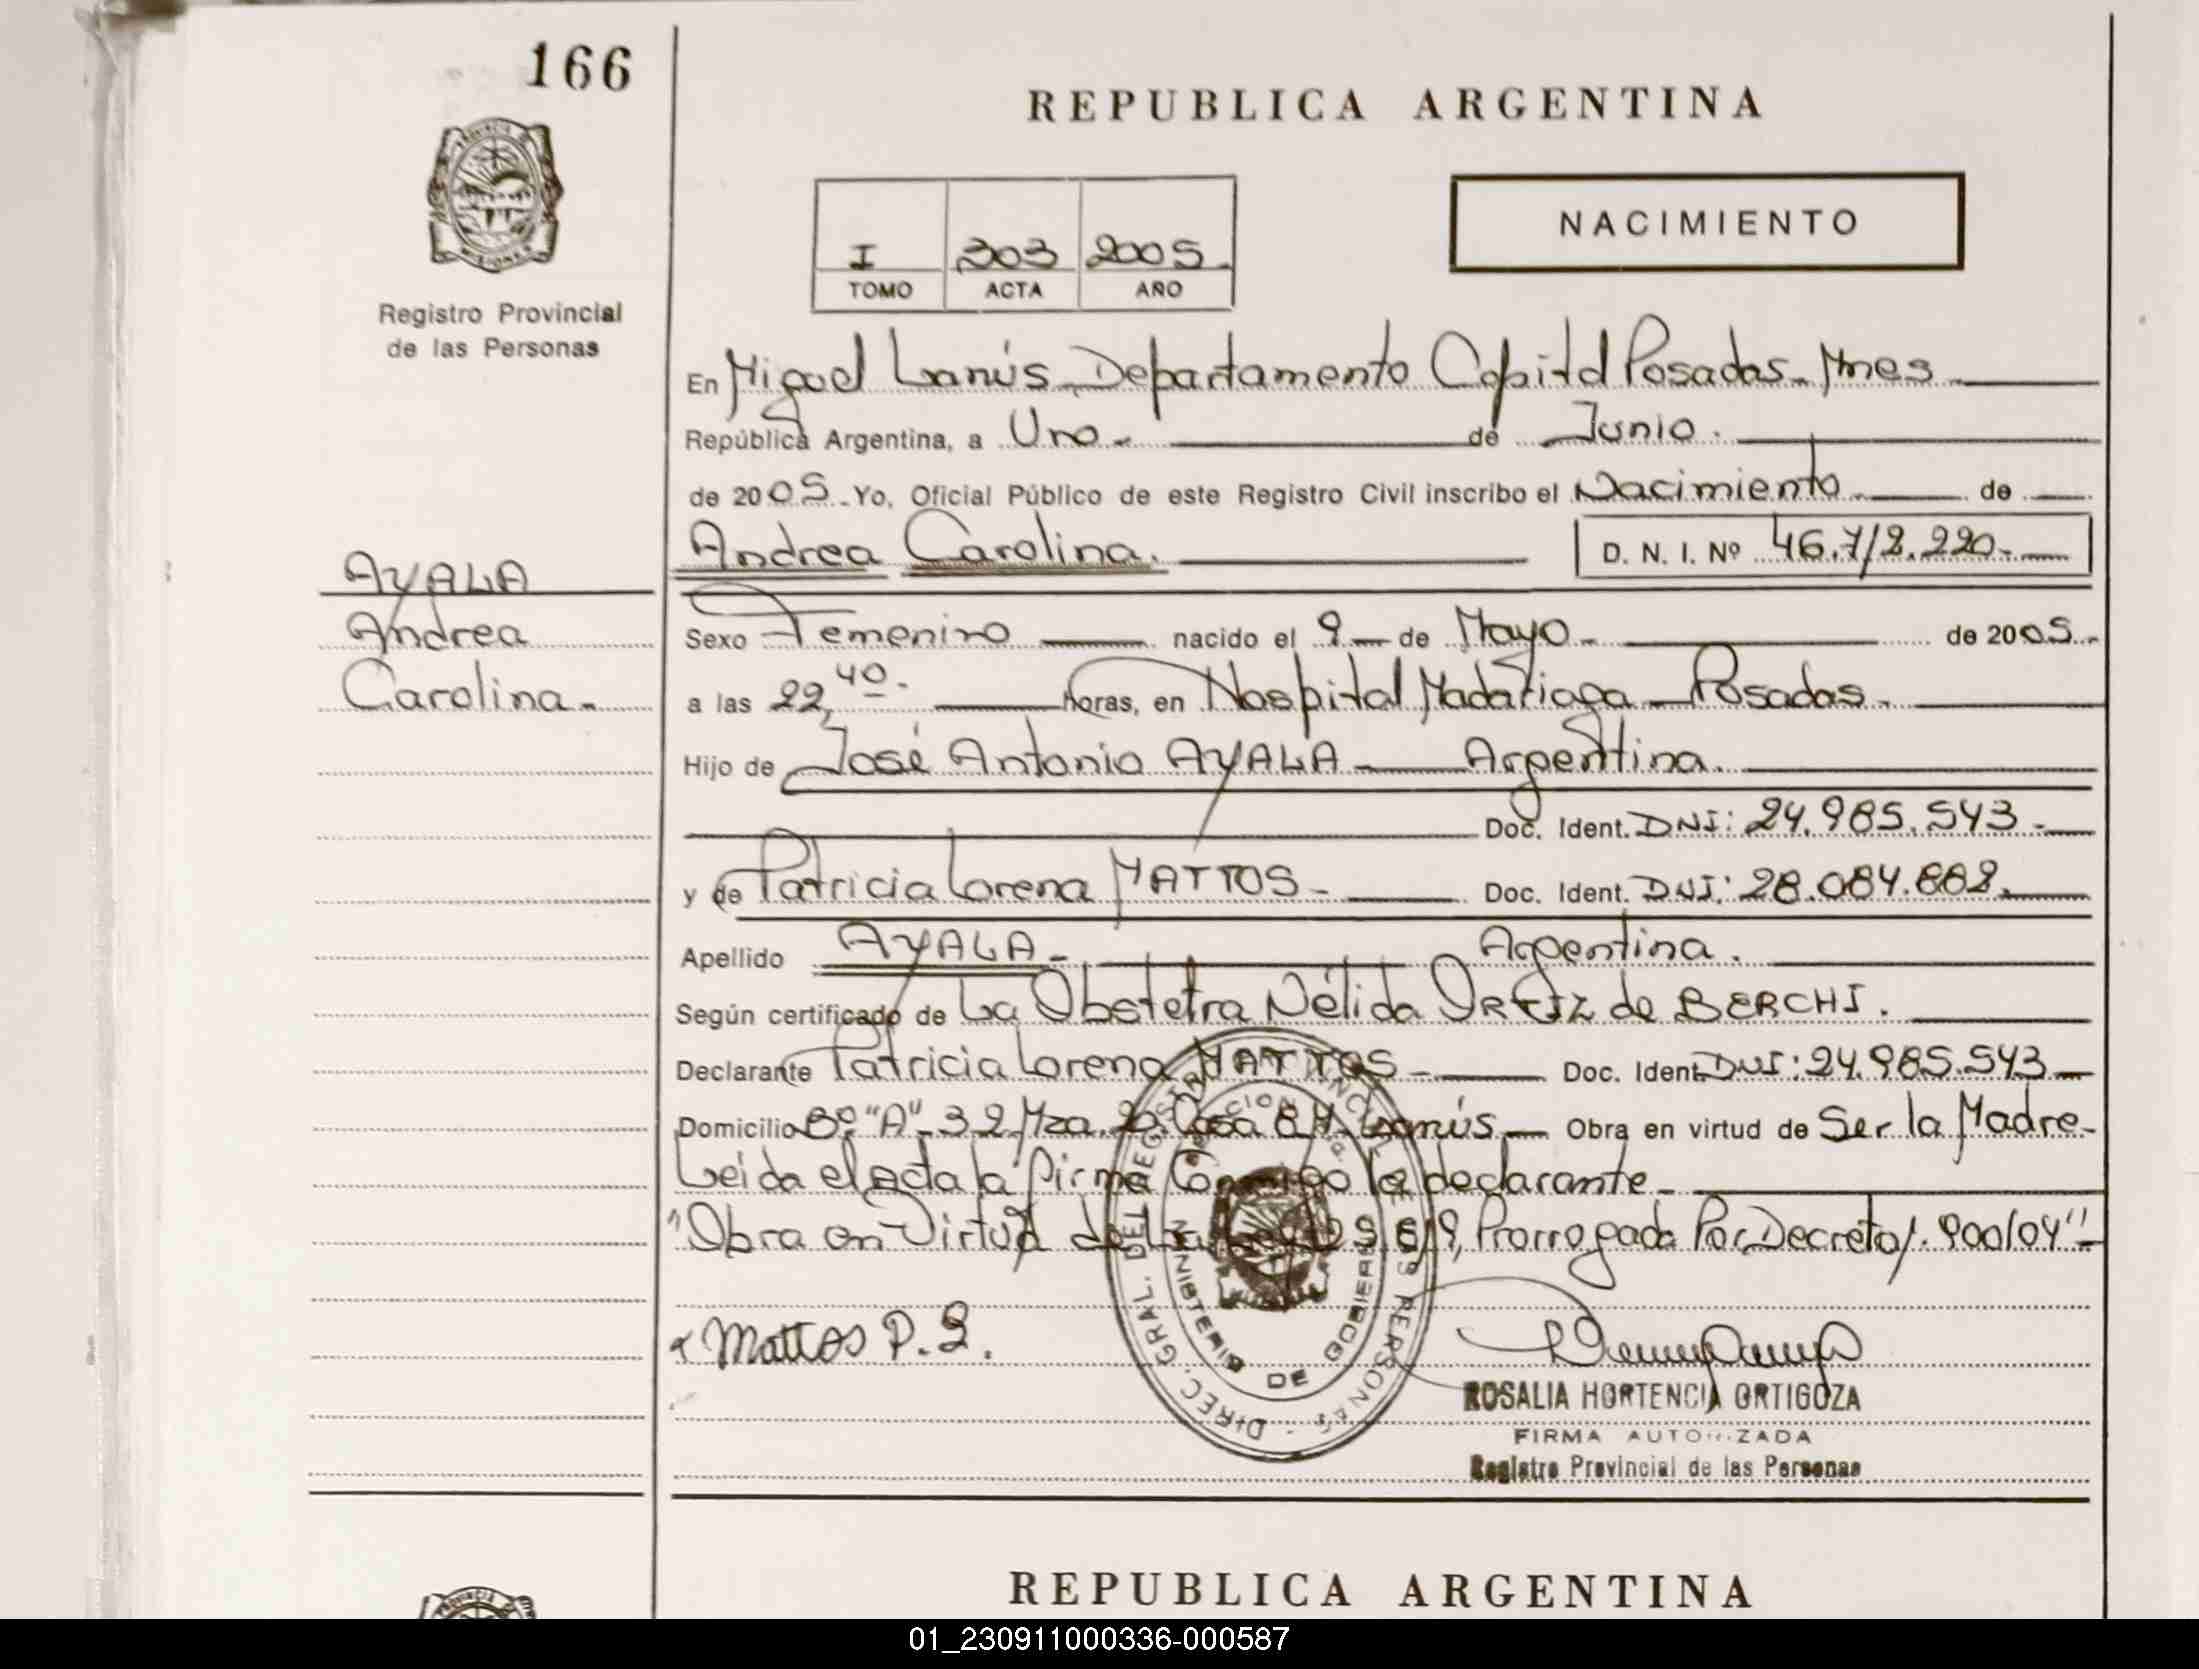 166
REPUBLICA ARGENTINA
PROVINCIA DE MISIONES
Registro Provincial
de las Personas
I 303 2005
TOMO ACTA AÑO
NACIMIENTO
En Miguel Lanús Departamento Capital Posadas Mnes
República Argentina, a Uno de Junio
de 2005 Yo, Oficial Público de este Registro Civil inscribo el Nacimiento de
Andrea Carolina. D. N. I. Nº 46.712.220
AYALA
Andrea
Carolina
Sexo Femenino nacido el 9 de Mayo de 2005
a las 22,40 horas, en Hospital Madariaga Posadas
Hijo de José Antonio AYALA Argentina.
Doc. Ident. DNI: 24.985.543
y de Patricia Lorena MATTOS Doc. Ident. DNI: 28.084.882
Apellido AYALA Argentina.
Según certificado de La Obstetra Nélida ORTIZ de BERCHI.
Declarante Patricia Lorena MATTOS Doc. Ident. DNI: 24.985.543
Domicilio Bº "A" 32 Mza. Casa 8 M. Lanús Obra en virtud de Ser la Madre
Leida el acta la firma Conmigo la declarante
"Obra en Virtud de la Prorrogada Por Decreto 900/04"
Mattos P.
DIREC. GRAL. DEL REGISTRO PROVINCIAL DE LAS PERSONAS
MINISTERIO DE GOBIERNO
ROSALIA HORTENCIA ORTIGOZA
FIRMA AUTORIZADA
Registro Provincial de las Personas
REPUBLICA ARGENTINA
01_230911000336-000587